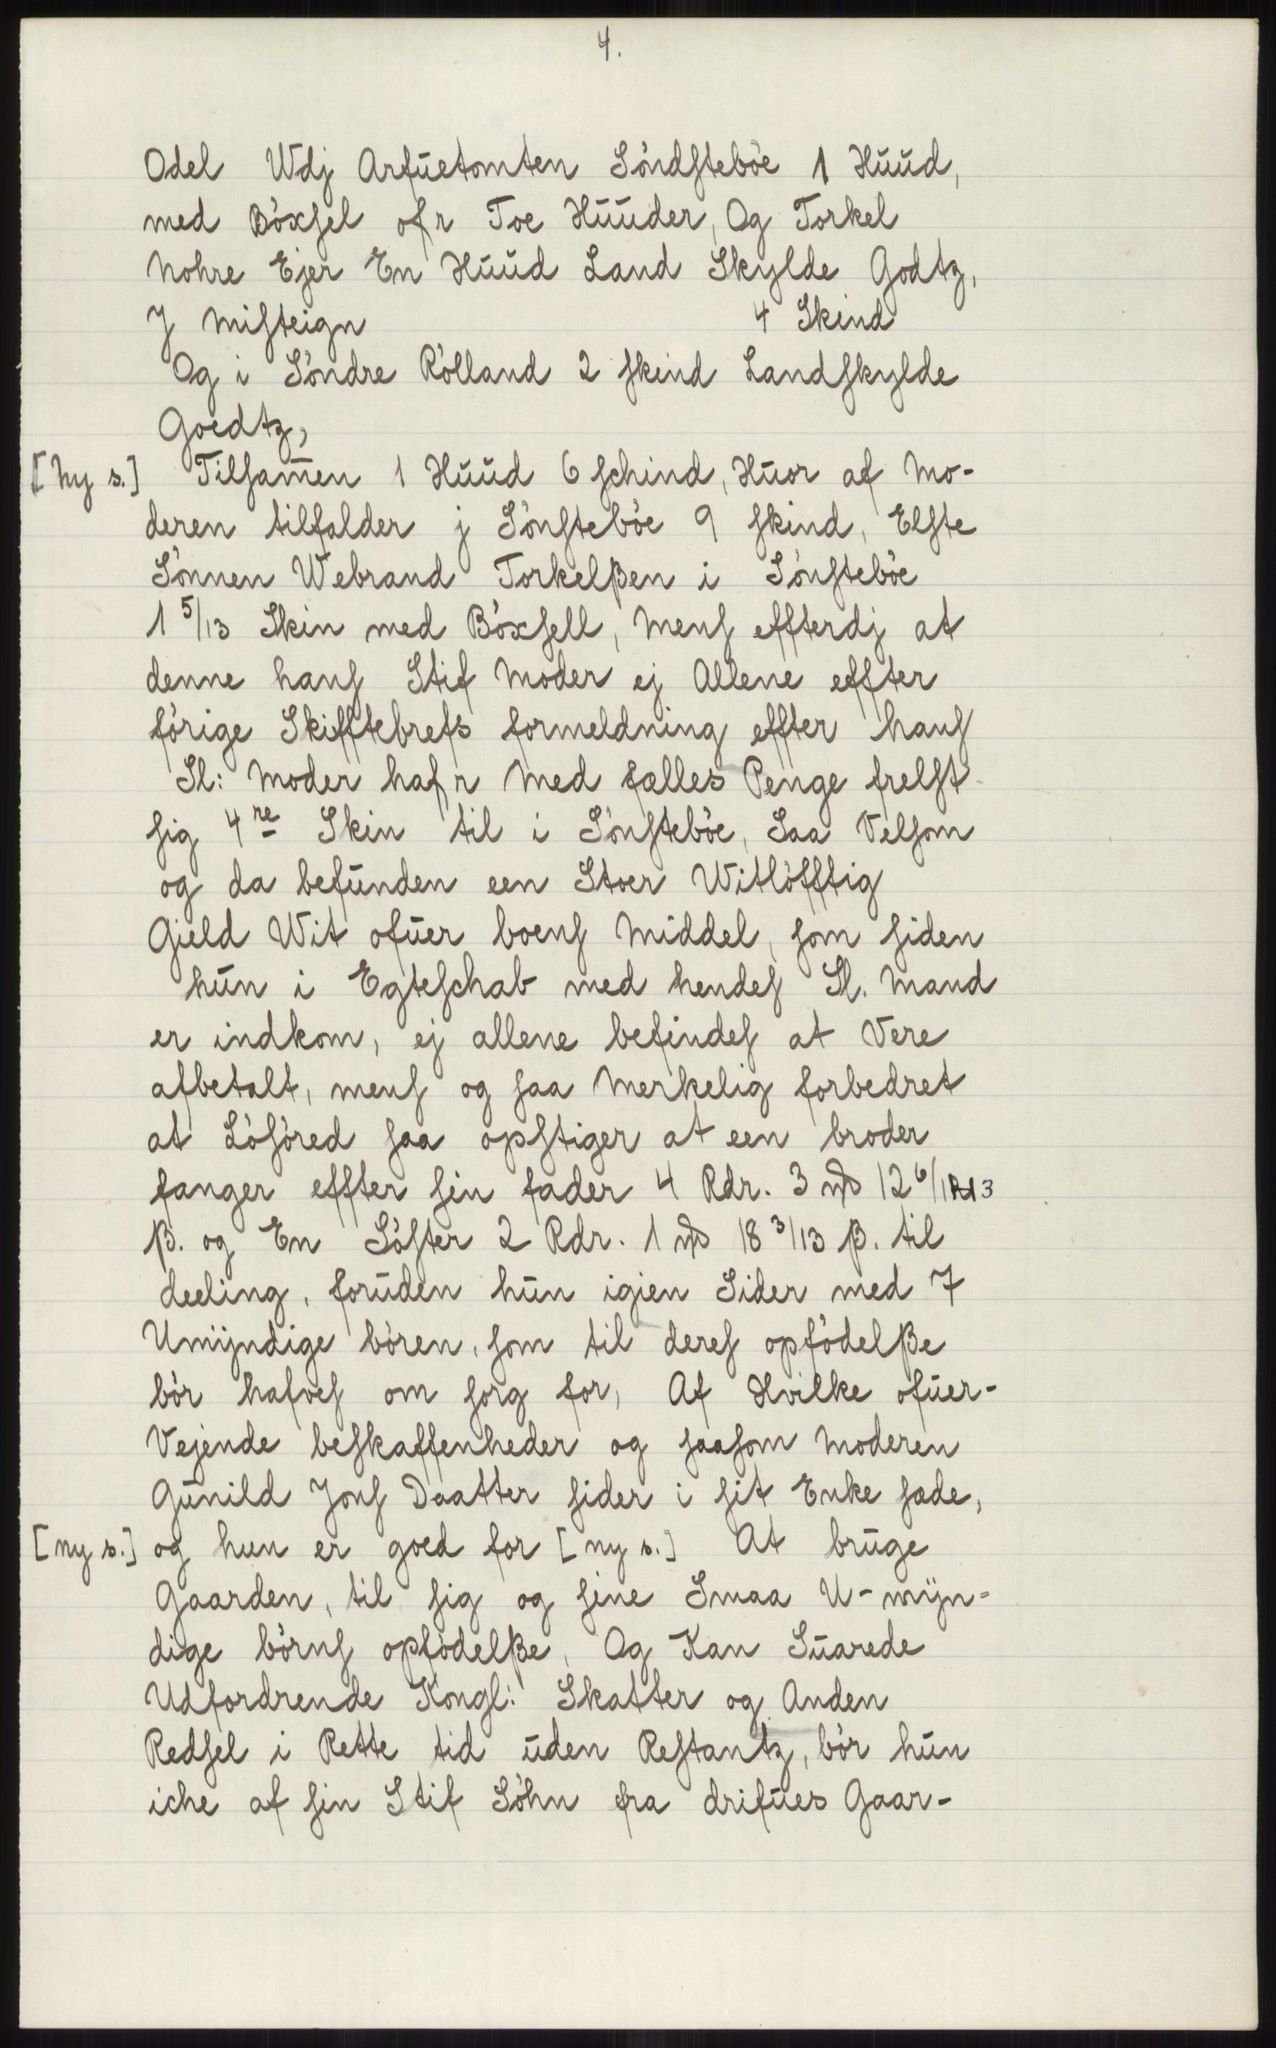 4.
Odel Wdj Arfuetomten Söndstebøe 1 Huud,
med Böxsel ofr Toe Huuder, Og Torkel
Nohre Ejer En Huud Land Skylde Godtz,
J Misteign 4 Skind
Og i Söndre Rölland 2 skind Landskylde
Goedtz,
[Ny s.] Tilsam̄en 1 Huud 6 schind, Huor af Mo-
deren tilfalder j Sönstebøe 9 skind, Elste
Sönnen Webrand Torkelßen i Sönstebøe
1 5/13 Skin med Böxsell, Mens effterdj at
denne hans Stif Moder ej Allene effter
förige Skifftebrefs formeldning effter hans
Sl: Moder hafr Med fælles Penge frelst
sig 4re Skin til i Sönstebøe, Saa Velsom
og da befunden een Stoer Witlöfftig
Gield Wit ofuer boens Middel, som siden
hun i Egteschab med hendes Sl. Mand
er indkom, ej allene befindes at Vere
afbetalt, mens og saa Merkelig forbedret
at Lösöred saa opstiger at een broder
fanger effter sin fader 4 Rdr. 3 mþ 12 6/13
β. og En Söster 2 Rdr. 1 mþ 18 3/13 β. til
deeling, foruden hun igien Sider med 7
Umijndige bören, som til deres opfödelße
bör hafves om sorg for, Af Hvilke ofuer-
Vejende beskaffenheder og saasom Moderen
Gunild Jons Daatter sider i sit Enke sæde,
[ny s.] og hun er goed for [ny s.] At bruge
Gaarden, til sig og sine Smaa U-mijn-
dige börns opfödelße, Og Kan Suarede
Udfordrende Kongl: Skatter og Anden
Redsel i Rette tid uden Restantz, bör hun
iche af sin Stif Söhn fra drifues Gaar-